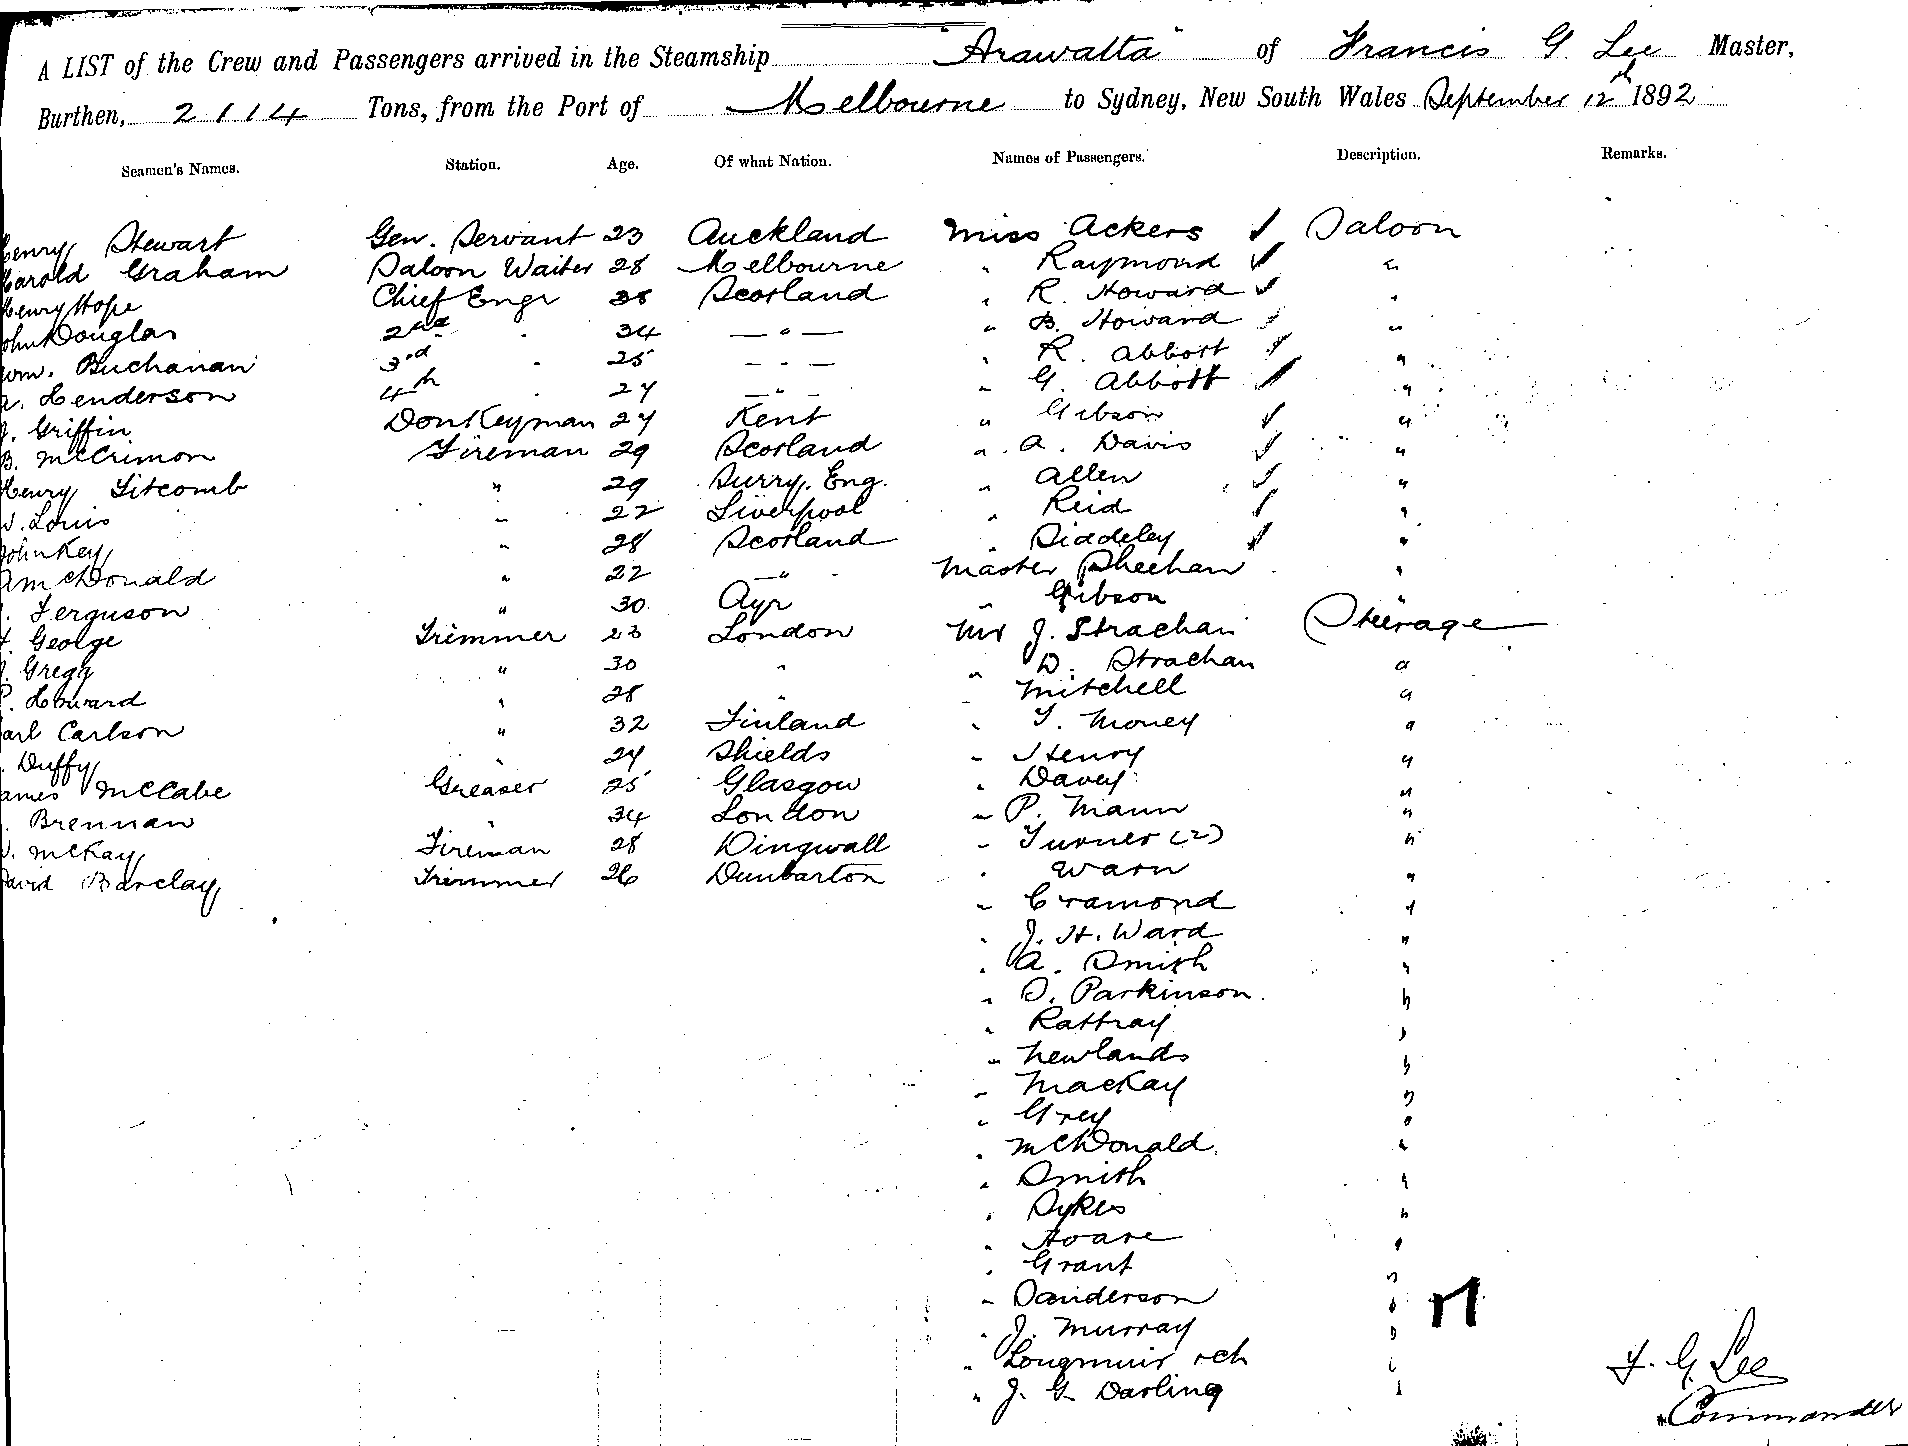 A LIST of the Crew and Passengers arrived in the Steamship "Arawatta" of Francis G. Lee Master,
Burthen, 2114 Tons, from the Port of Melbourne to Sydney, New South Wales September 12th 1892
Seamen's Names. Station. Age. Of what Nation. Names of Passengers. Description. Remarks.
Henry Stewart Gen. Servant 23 Auckland Miss Ackers ✓ Saloon
Harold Graham Saloon Waiter 28 Melbourne " Raymond ✓ "
Henry Hope Chief Engr 38 Scotland " R. Howard ✓ "
John Douglas 2nd " 34 — " — " B. Howard ✓ "
Wm. Buchanan 3rd " 25 — " — " R. Abbott ✓ "
Henderson 4th " 27 — " — " G. Abbott ✓ "
Griffin Donkeyman 27 Kent " Gibson ✓ "
B. McCrimon Fireman 29 Scotland " A. Davis ✓ "
Henry Titcomb " 29 Surry. Eng. " Allen ✓ "
Louis " 22 Liverpool " Reid ✓ "
John Key " 28 Scotland " Siddeley ✓ "
McDonald " 22 — " Master Sheehan "
Ferguson " 30 Ayr " Gibson "
George Trimmer 23 London Mr J. Strachan Steerage
Gregg " 30 " " D. Strachan "
Howard " 28 " " Mitchell "
Carl Carlson " 32 Finland " T. Money "
Duffy " 24 Shields " Henry "
James McCabe Greaser 25 Glasgow " Davey "
Brennan " 34 London " P. Mann "
McKay Fireman 28 Dingwall " Turner (2) "
David Barclay Trimmer 26 Dunbarton " Warn "
" Cramond "
" J. H. Ward "
" A. Smith "
" O. Parkinson "
" Rattray "
" Newlands "
" MacKay "
" Grey "
" McDonald "
" Smith "
" Sykes "
" Hoare "
" Grant "
" Sanderson "
" J. Murray "
" Longmuir "
" J. G. Darling "
F. G. Lee
Commander